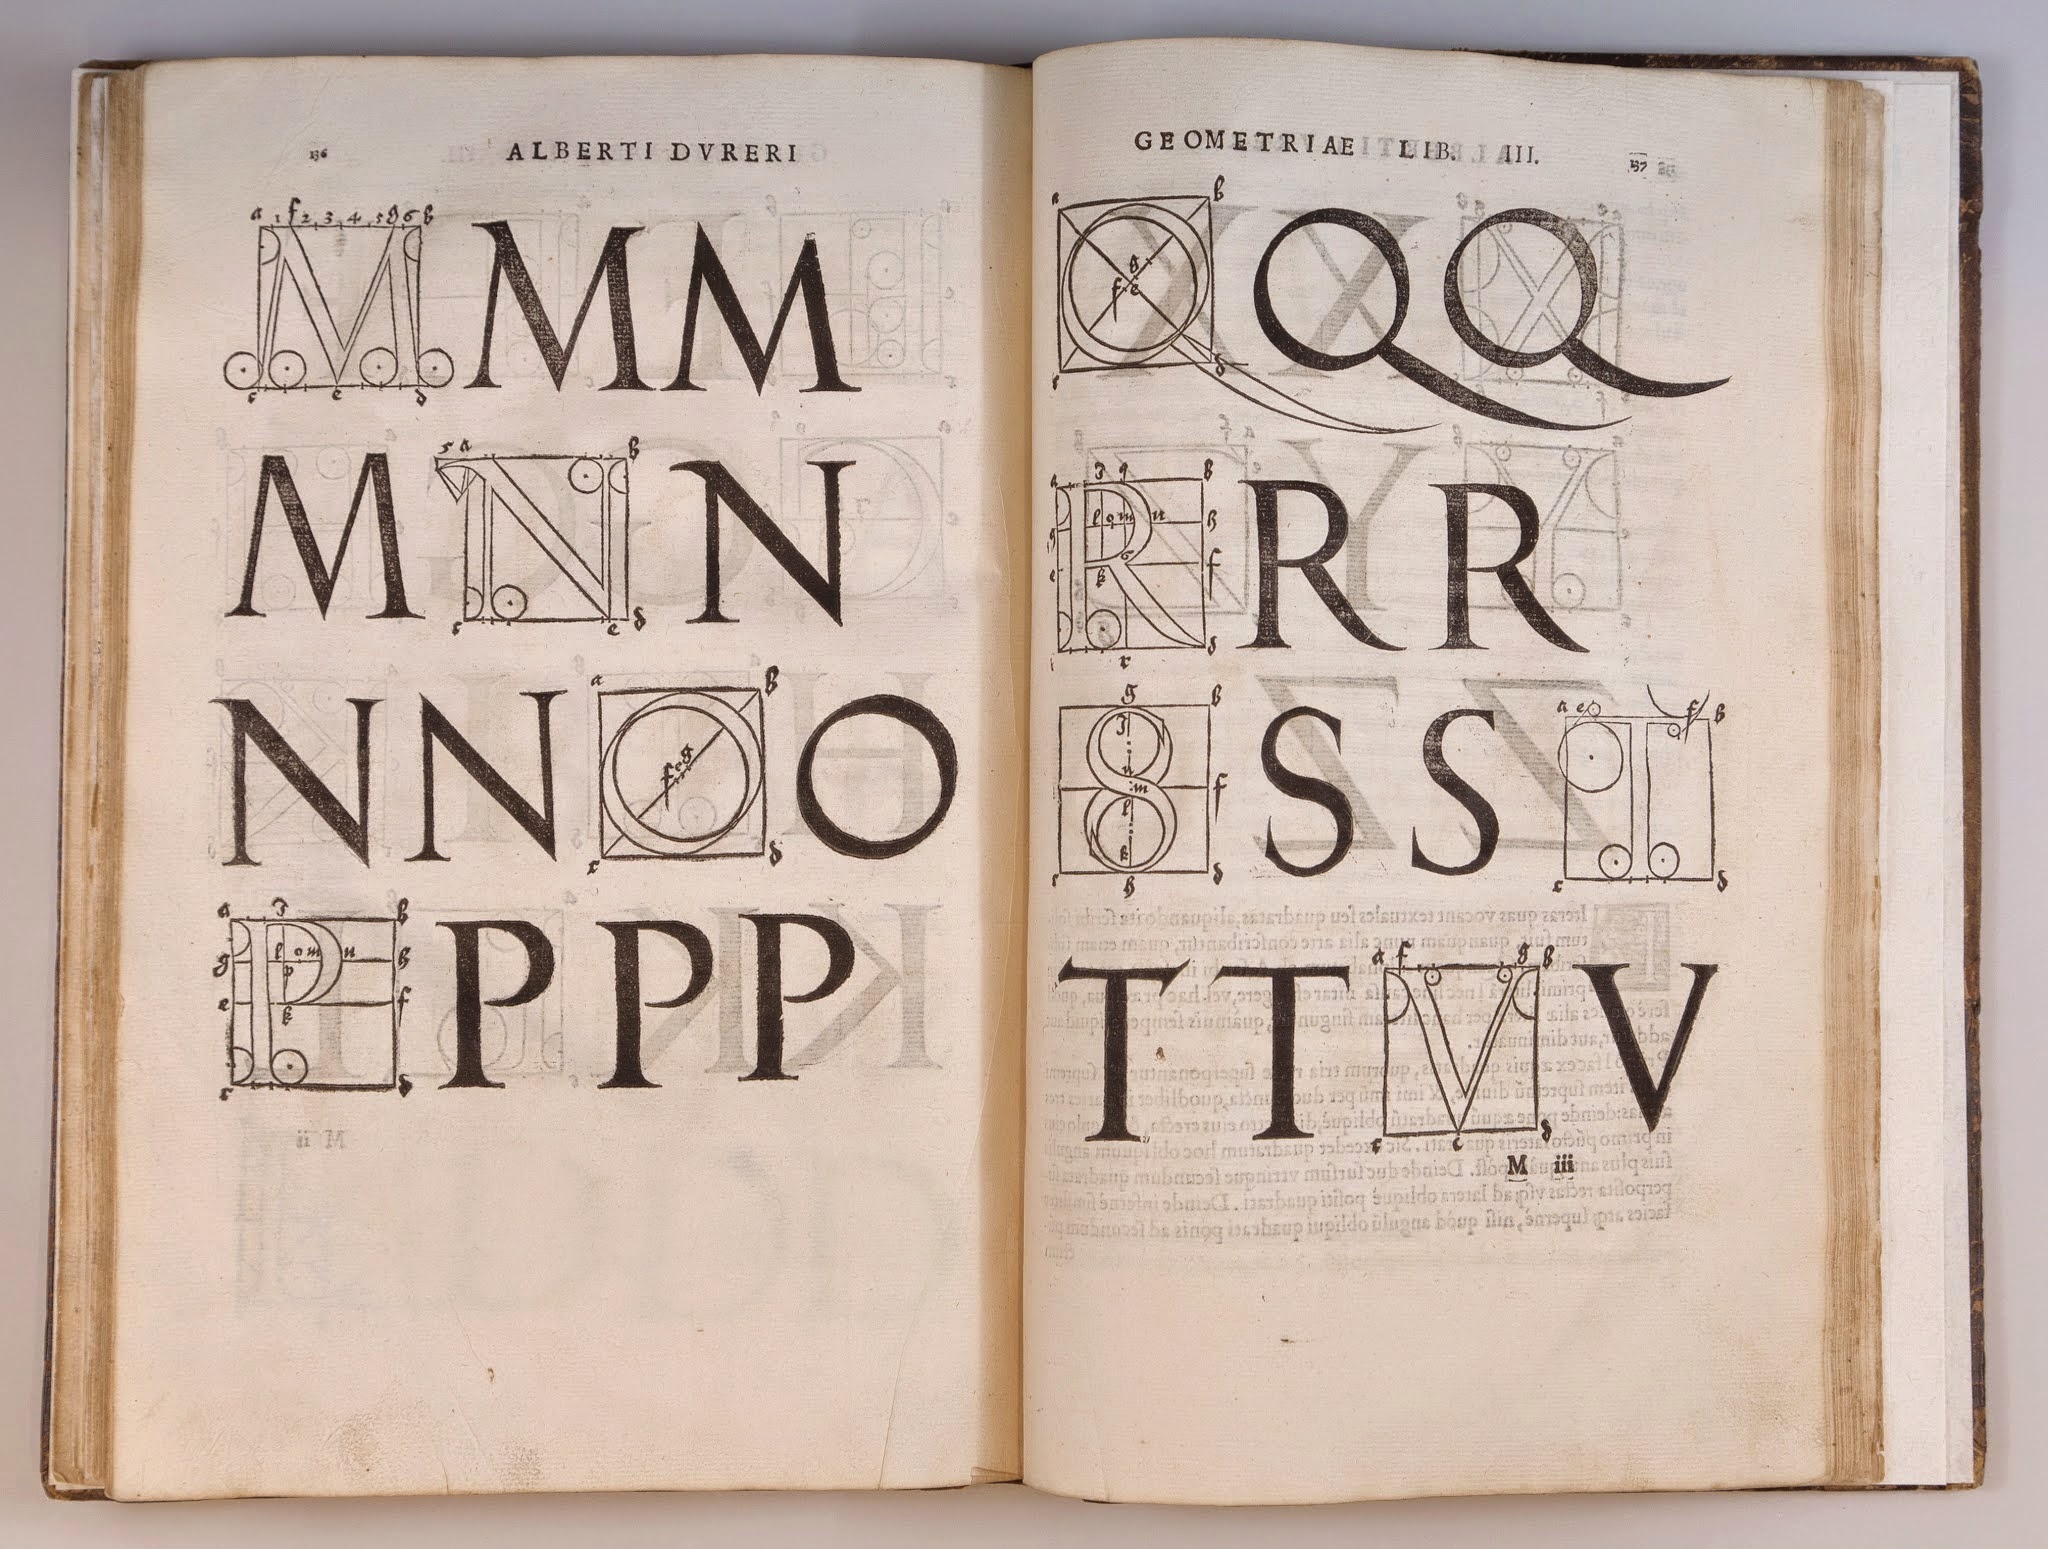 136 ALBERTI DVRERI
a 1 f 2 3 4 5 g 6 b
M M M
c e d
5 a b
M N N
c e d
a b
N N O O
f e g
c d
a i b
P P P P
g l o m n h
p
e k f
c d
GEOMETRIAE LIB. III. 137
a b
Q Q Q
g
f e
c d
a i q b
R R R
g l o m n h
e k f
c r d
g b a e f b
S S S T
i
n
m f
l
k
c h d c d
a f g b
T T V V
c e d
M iii